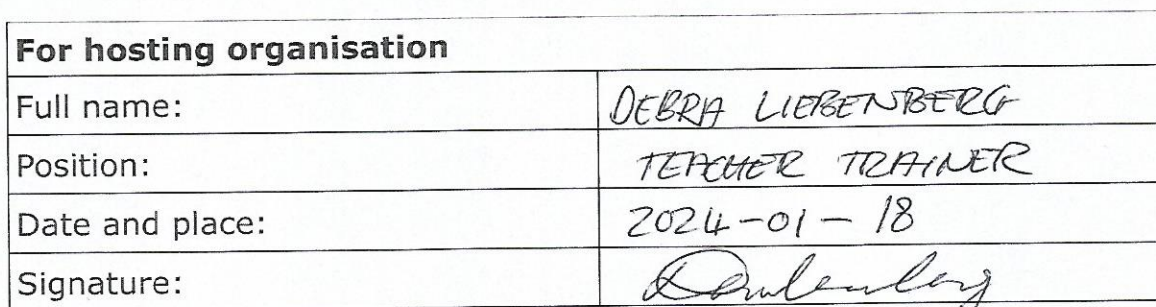 For hosting organisation
Full name: DEBRA LIEBENBERG
Position: TEACHER TRAINER
Date and place: 2024-01-18
Signature: